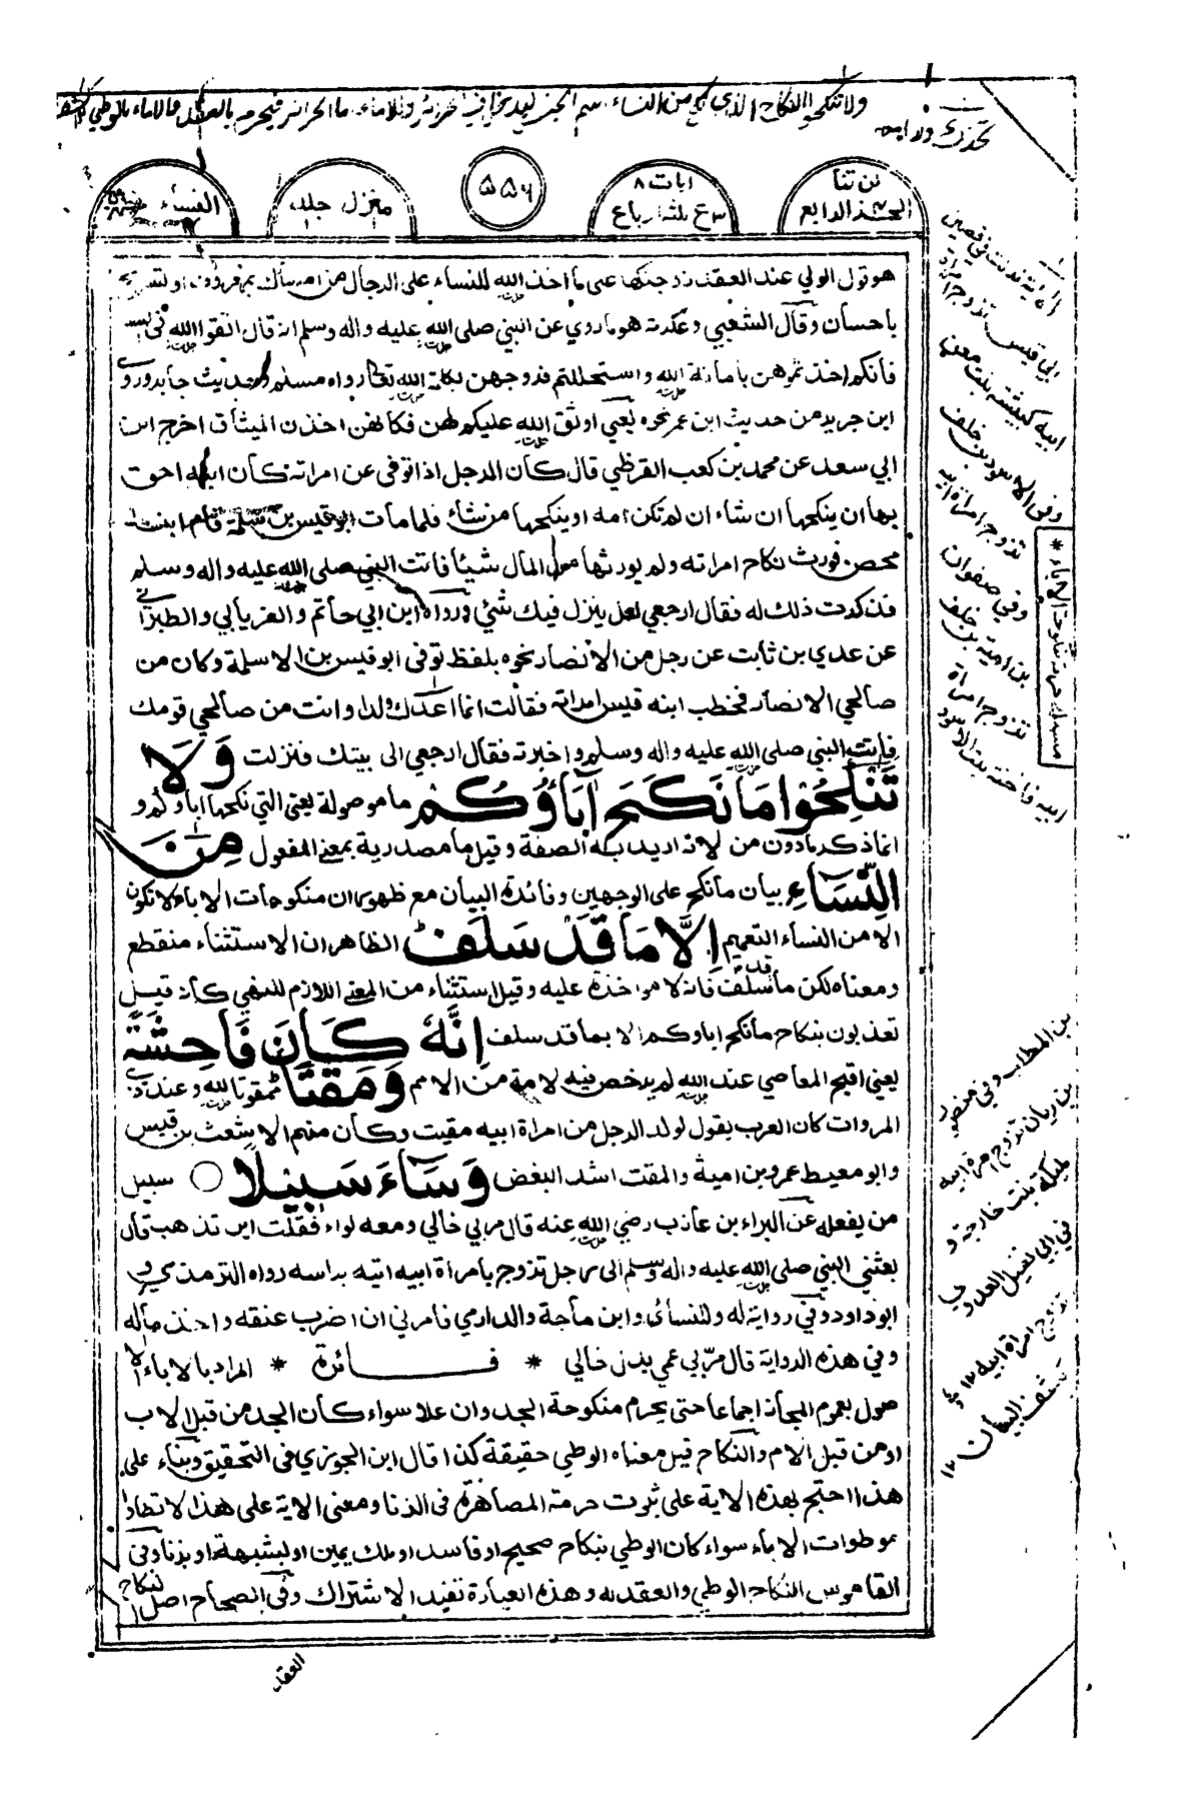 ولا تنكحوا النكاح الذي نكح من النساء
لن تنا
الجزء الرابع
ايات ٨
٣ع ثلثة ارباع
٥٥٦
منزل جلد
النساء
هو قول الولي عند العقد زوجتكها على ما اخذ الله للنساء على الرجال من امساك بمعروف او تسريح
باحسان وقال الشعبي وعكرمة هو ما روي عن النبي صلى الله عليه واله وسلم انه قال اتقوا الله في النساء
فانكم اخذتموهن بامانة الله واستحللتم فروجهن بكلمة الله تعالى رواه مسلم من حديث جابر وروى
ابن جرير من حديث ابن عمر نحوه يعني اوثق الله عليكم لهن فكانهن اخذن الميثاق اخرج ابن
ابي سعد عن محمد بن كعب القرظي قال كان الرجل اذا توفى عن امراته كان ابنه احق
بها ان ينكحها ان شاء ان لم تكن امه او ينكحها من شاء فلما مات ابو قيس بن سلمة قام ابنه
محصن فورث نكاح امراته ولم يورثها من المال شيئا فاتت النبي صلى الله عليه واله وسلم
فذكرت ذلك له فقال ارجعي لعل ينزل فيك شئ ورواه ابن ابي حاتم والفريابي والطبراني
عن عدي بن ثابت عن رجل من الانصار نحوه بلفظ توفى ابو قيس بن الاسلمة وكان من
صالحي الانصار فخطب ابنه قيس امراته فقالت انما اعدك ولدا وانت من صالحي قومك
فاتت النبي صلى الله عليه واله وسلم واخبرته فقال ارجعي الى بيتك فنزلت وَلَا
تَنْكِحُوا مَا نَكَحَ آبَاؤُكُمْ ما موصولة يعنى التي نكحها اباؤكم و
انما ذكر ما دون من لانه اريد به الصفة وقيل ما مصدرية بمعنى المفعول مِنَ
النِّسَاءِ بيان ما نكح على الوجهين وفائدة البيان مع ظهور ان منكوحات الاباء لا تكون
الا من النساء التعميم إِلَّا مَا قَدْ سَلَفَ ط الظاهر ان الاستثناء منقطع
ومعناه لكن ما قد سلف فانه لا مواخذة عليه وقيل استثناء من المعنى اللازم للنهي كانه قيل
تعذبون بنكاح ما نكح اباوكم الا بما قد سلف إِنَّهُ كَانَ فَاحِشَةً
يعني اقبح المعاصي عند الله لم يرخص فيه لامة من الامم وَمَقْتًا ط ممقوتا لله وعند ذوي
المروات كان العرب يقول لولد الرجل من امراة ابيه مقيت وكان منهم الاشعث بن قيس
وابو معيط عمرو بن امية والمقت اشد البغض وَسَاءَ سَبِيلًا ○ سبيل
من يفعله عن البراء بن عازب رضي الله عنه قال مر بي خالي ومعه لواء فقلت اين تذهب قال
بعثني النبي صلى الله عليه واله وسلم الى رجل تزوج بامراة ابيه اتيه براسه رواه الترمذي و
ابو داود وفي رواية له وللنسائى وابن ماجة والدارمي فامرني ان اضرب عنقه واخذ ماله
وفي هذه الرواية قال مر بي عمي بدل خالي * فائدة * المراد بالاباء الا
صول بعموم المجاز اجماعا حتى يحرم منكوحة الجد وان علا سواء كان الجد من قبل الاب
او من قبل الام والنكاح قيل معناه الوطي حقيقة كذا قال ابن الجوزي في التحقيق وبناء على
هذا احتج بهذه الاية على ثبوت حرمة المصاهرة فى الزنا ومعنى الاية على هذا لا تطاوا
موطوات الاباء سواء كان الوطي بنكاح صحيح او فاسد او ملك يمين او لشبهة او بزنا وفى
القاموس النكاح الوطي والعقد له وهذه العبارة تفيد الاشتراك وفى الصحاح اصل النكاح
العقد
الاية نزلت في حصين
ابي قيس تزوج امراة
ابيه كبيشة بنت معن
وفى الاسود بن خلف
تزوج امراة ابيه
وفي صفوان
بن امية بن خلف
تزوج امراة
ابيه فاختة بنت الاسود
مسئلة حرمة منكوحة الاباء *
بن المطلب وفي منظور
بن ريان تزوج امراة ابيه
مليكة بنت خارجة و
في ابي نفيل العدوي
تزوج امراة ابيه ١٢
كشف البيان ١٢